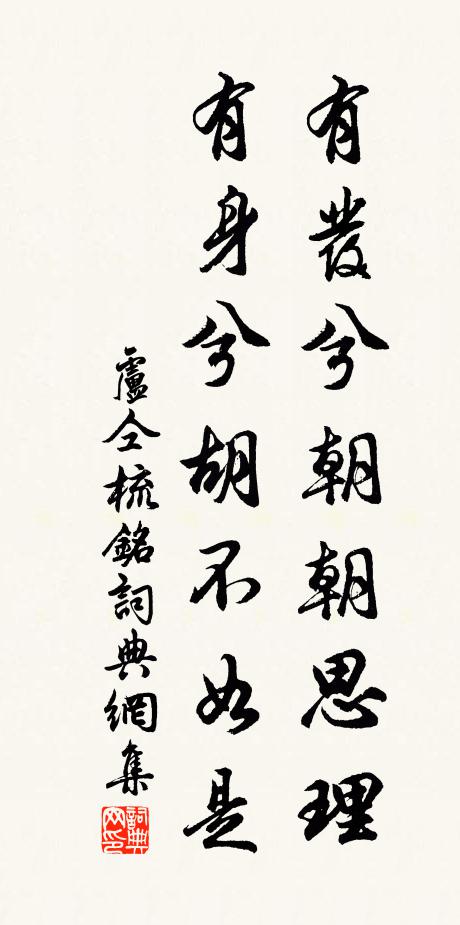 有發兮朝朝思理
有身兮胡不如是
盧仝梳銘詞典網集
詞典
网印